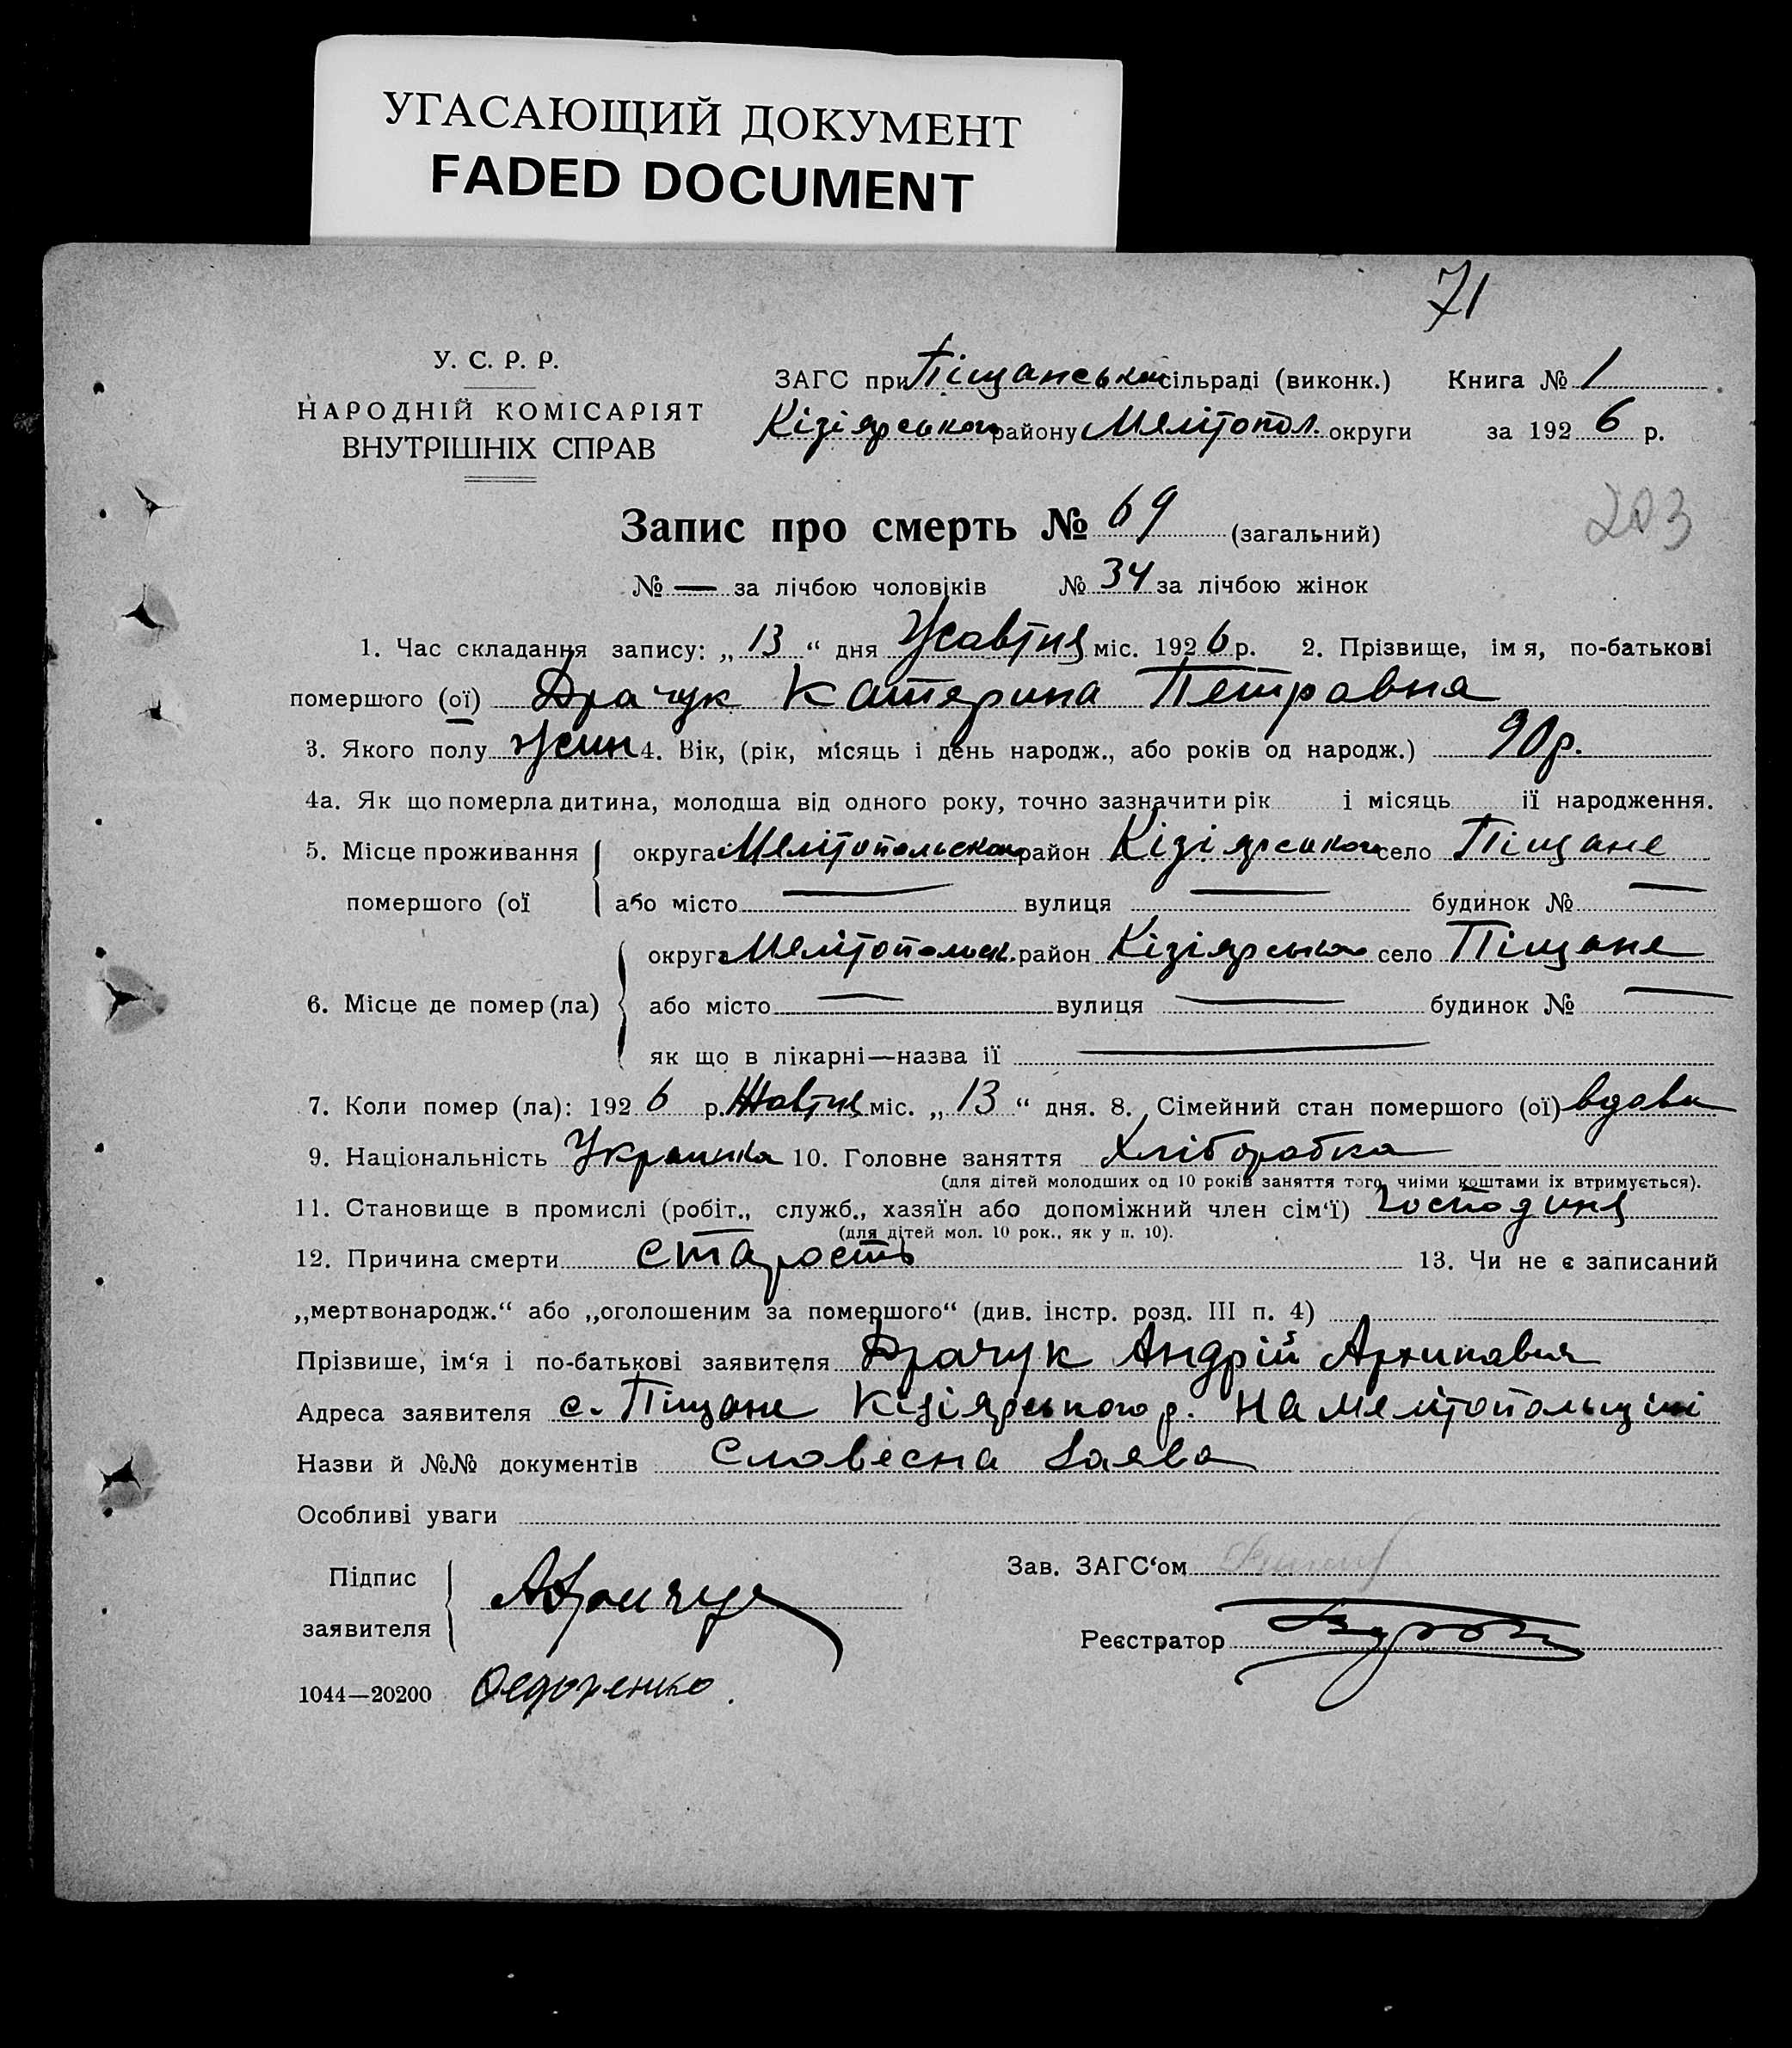 УГАСАЮЩИЙ ДОКУМЕНТ
FADED DOCUMENT
71
У. С. Р. Р.
НАРОДНІЙ КОМІСАРІЯТ
ВНУТРІШНІХ СПРАВ
ЗАГС при Піщанській сільраді (виконк.) Книга № 1
Кізіярського району Мелітопол. округи за 1926 р.
203
Запис про смерть № 69 (загальний)
№ — за лічбою чоловіків № 34 за лічбою жінок
1. Час складання запису: „13“ дня Жовтня міс. 1926 р. 2. Прізвище, імя, по-батькові
помершого (ої) Драчук Катерина Петровна
3. Якого полу жин 4. Вік, (рік, місяць і день народж., або років од народж.) 90 р.
4а. Як що померла дитина, молодша від одного року, точно зазначити рік і місяць ії народження.
5. Місце проживання округа Мелітопольского район Кізіярського село Піщане
помершого (ої або місто — вулиця — будинок № —
округа Мелітопольск. район Кізіярська село Піщане
6. Місце де помер (ла) або місто — вулиця — будинок № —
як що в лікарні—назва ії —
7. Коли помер (ла): 1926 р. Жовтня міс. „13“ дня. 8. Сімейний стан помершого (ої) вдова
9. Національність Украинка 10. Головне заняття Хліборобка
(для дітей молодших од 10 років заняття того, чиїми коштами їх втримується).
11. Становище в промислі (робіт., служб., хазяїн або допоміжний член сім‘ї) господиня
(для дітей мол. 10 рок., як у п. 10).
12. Причина смерти старость 13. Чи не є записаний
„мертвонародж.“ або „оголошеним за помершого“ (див. інстр. розд. III п. 4)
Прізвише, ім‘я і по-батькові заявителя Драчук Андрій Архипович
Адреса заявителя с. Піщане Кізіярського р. на Мелітопольщині
Назви й №№ документів Словесна Заява
Особливі уваги
Підпис
заявителя А Драчук
Зав. ЗАГС‘ом
Реєстратор
1044—20200 Федоренко.